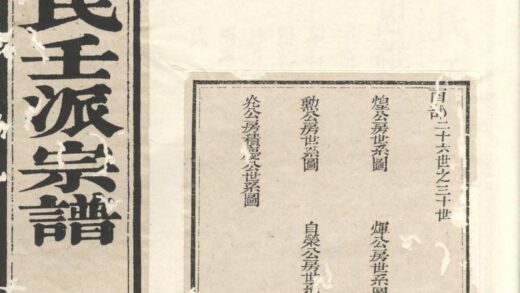 二十六世之三十世
煌公房世系圖 煇公房世系圖
勳公房世系圖 自榮公房世系
公房積慶公世系圖
壬派宗譜